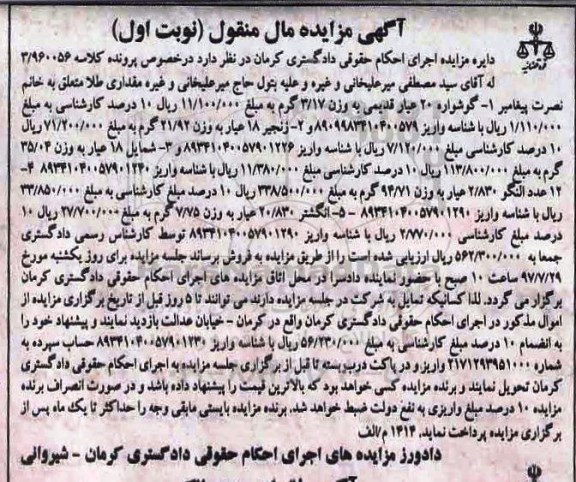 آگهی مزایده مال منقول (نوبت اول)
دایره مزایده اجرای احکام حقوقی دادگستری کرمان در نظر دارد درخصوص پرونده کلاسه ۳/۹۶۰۰۵۶
له آقای سید مصطفی میرعلیخانی و غیره و علیه بتول حاج میرعلیخانی و غیره مقداری طلا متعلق به خانم
نصرت پیغامبر ۱- گوشواره ۲۰ عیار قدیمی به وزن ۳/۱۷ گرم به مبلغ ۱۱/۱۰۰/۰۰۰ ریال ۱۰ درصد کارشناسی به مبلغ
۱/۱۱۰/۰۰۰ ریال با شناسه واریز ۸۹۰۹۹۸۳۴۱۰۴۰۰۵۷۹ و ۲- زنجیر ۱۸ عیار به وزن ۲۱/۹۲ گرم به مبلغ ۷۱/۲۰۰/۰۰۰ ریال
۱۰ درصد کارشناسی مبلغ ۷/۱۲۰/۰۰۰ ریال با شناسه واریز ۸۹۳۴۱۰۴۰۰۵۷۹۰۱۲۲۶ و ۳- شمایل ۱۸ عیار به وزن ۳۵/۰۴
گرم به مبلغ ۱۱۳/۸۰۰/۰۰۰ ریال ۱۰ درصد کارشناسی مبلغ ۱۱/۳۸۰/۰۰۰ ریال با شناسه واریز ۸۹۳۴۱۰۴۰۰۵۷۹۰۱۲۴۰ ۴-
۱۲ عدد النگو ۲/۸۳۰ عیار به وزن ۹۴/۷۱ گرم به مبلغ ۳۳۸/۵۰۰/۰۰۰ ریال ۱۰ درصد مبلغ کارشناسی به مبلغ ۳۳/۸۵۰/۰۰۰
ریال با شناسه واریز ۸۹۳۴۱۰۴۰۰۵۷۹۰۱۲۹۰ ۵- انگشتر ۲۰/۸۳۰ عیار به وزن ۷/۷۵ گرم به مبلغ ۲۷/۷۰۰/۰۰۰ ریال ۱۰
درصد مبلغ کارشناسی ۲/۷۷۰/۰۰۰ ریال با شناسه واریز ۸۹۳۴۱۰۴۰۰۵۷۹۰۱۲۹۰ توسط کارشناس رسمی دادگستری
جمعا به ۵۶۲/۳۰۰/۰۰۰ ریال ارزیابی شده است را از طریق مزایده به فروش برساند جلسه مزایده برای روز یکشنبه مورخ
۹۷/۷/۲۹ ساعت ۱۰ صبح با حضور نماینده دادسرا در محل اتاق مزایده های اجرای احکام حقوقی دادگستری کرمان
برگزار می گردد. لذا کسانیکه تمایل به شرکت در جلسه مزایده دارند می توانند تا ۵ روز قبل از تاریخ برگزاری مزایده از
اموال مذکور در اجرای احکام حقوقی دادگستری کرمان واقع در کرمان - خیابان عدالت بازدید نمایند و پیشنهاد خود را
به انضمام ۱۰ درصد مبلغ کارشناسی به مبلغ ۵۶/۲۳۰/۰۰۰ ریال با شناسه واریز ۸۹۳۴۱۰۴۰۰۵۷۹۰۱۲۳۰ حساب سپرده به
شماره ۲۱۷۱۲۹۳۹۵۱۰۰۰ واریز و در پاکت درب بسته تا قبل از برگزاری جلسه مزایده به اجرای احکام حقوقی دادگستری
کرمان تحویل نمایند و برنده مزایده کسی خواهد بود که بالاترین قیمت را پیشنهاد داده باشد و در صورت انصراف برنده
مزایده ۱۰ درصد مبلغ واریزی به نفع دولت ضبط خواهد شد. برنده مزایده بایستی مابقی وجه را حداکثر تا یک ماه پس از
برگزاری مزایده پرداخت نماید. ۱۴۱۴ م/الف
دادورز مزایده های اجرای احکام حقوقی دادگستری کرمان - شیروانی